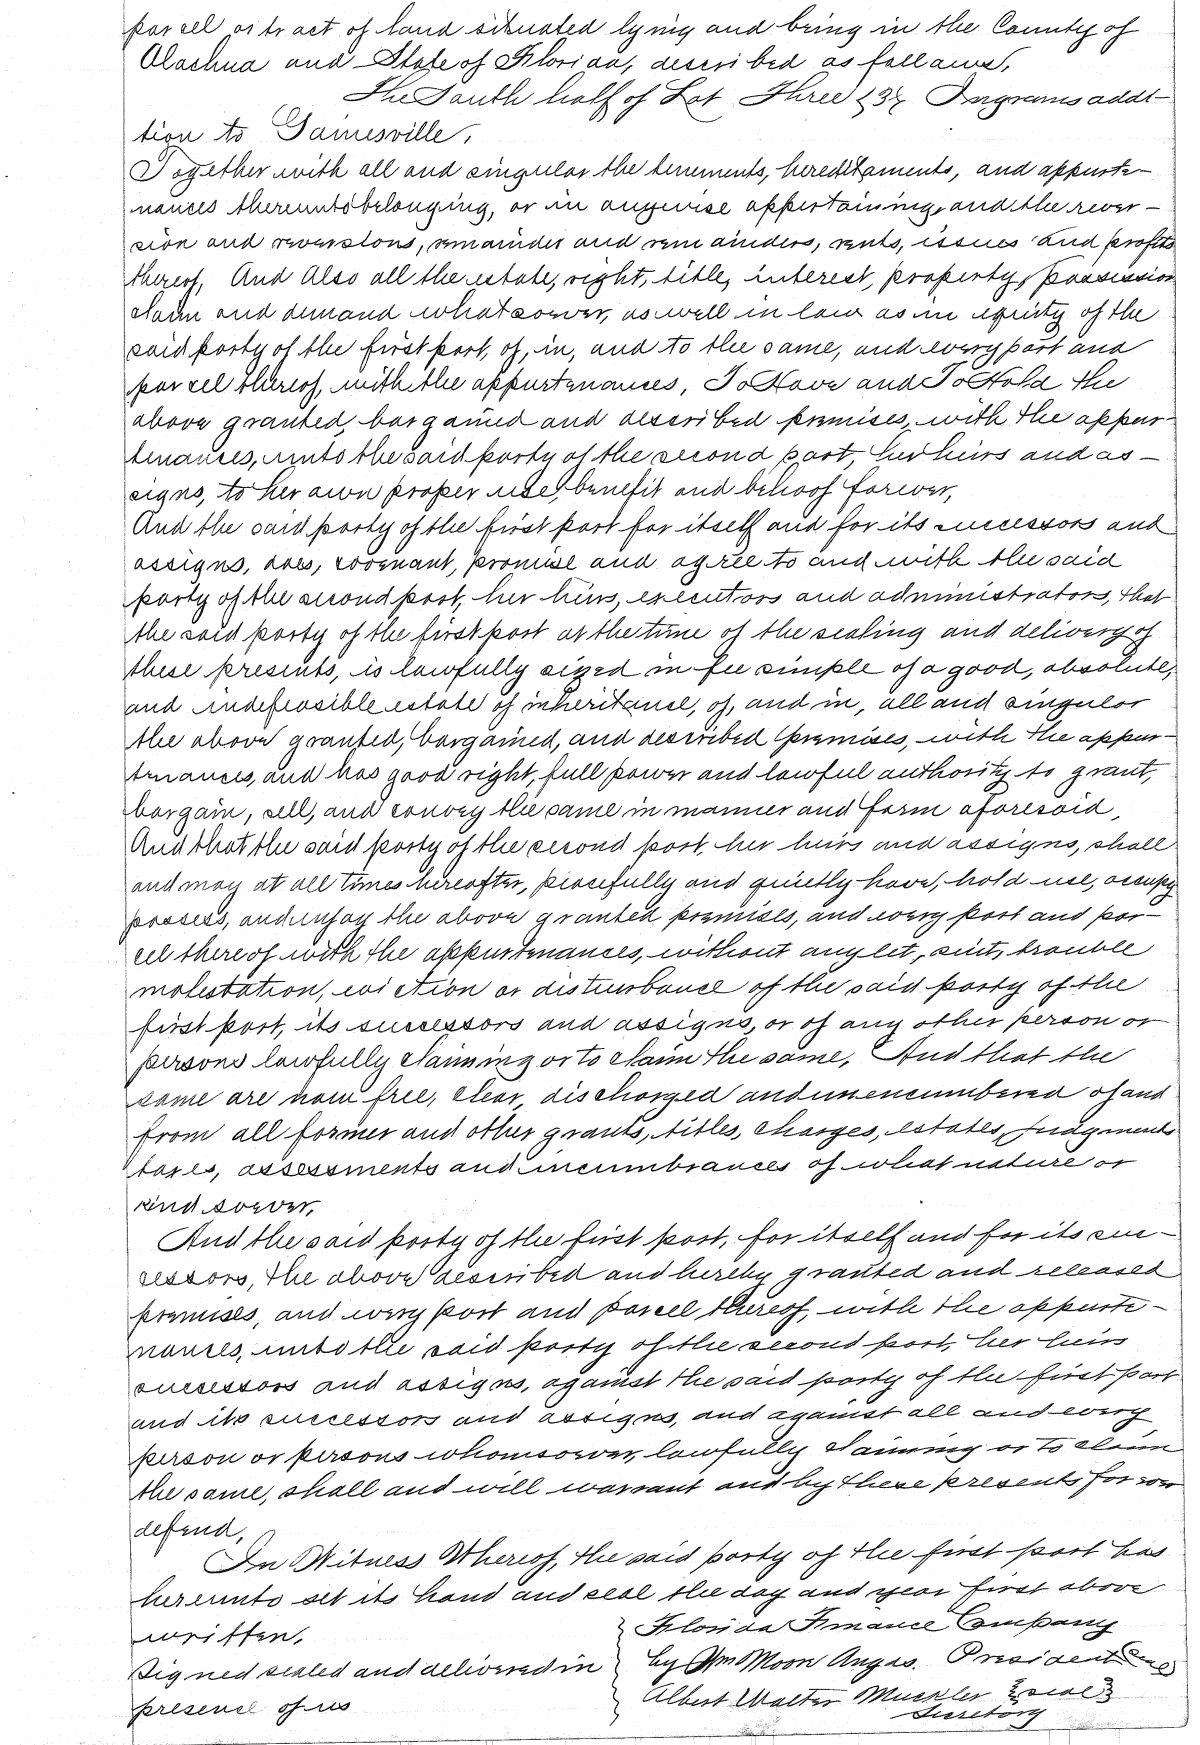 parcel or tract of land situated lying and being in the County of
Alachua and State of Florida, described as follows,
The South half of Lot Three {3} Ingrams addi-
tion to Gainesville,
Together with all and singular the tenements, hereditaments, and appurte-
nances thereunto belonging, or in anywise appertaining, and the rever-
sion and reversions, remainder and remainders, rents, issues and profits
thereof, And Also all the estate, right, title, interest, property, possession
claim and demand whatsoever, as well in law as in equity of the
said party of the first part, of, in, and to the same, and every part and
parcel thereof, with the appurtenances, To Have and To Hold the
above granted, bargained and described premises, with the appur-
tenances, unto the said party of the second part, her heirs and as-
signs, to her own proper use, benefit and behoof forever,
And the said party of the first part for itself and for its successors and
assigns, does, covenant, promise and agree to and with the said
party of the second part, her heirs, executors and administrators, that
the said party of the first part at the time of the sealing and delivery of
these presents, is lawfully sized in fee simple of a good, absolute,
and indefeasible estate of inheritance, of, and in, all and singular
the above granted, bargained, and described premises, with the appur-
tenances, and has good right, full power and lawful authority to grant,
bargain, sell, and convey the same in manner and form aforesaid,
And that the said party of the second part, her heirs and assigns, shall
and may at all times hereafter, peacefully and quietly have, hold use, occupy
possess, and enjoy the above granted premises, and every part and par-
cel thereof with the appurtenances, without any let, suit, trouble
molestation, eviction or disturbance of the said party of the
first part, its successors and assigns, or of any other person or
persons lawfully claiming or to claim the same, And that the
same are now free, clear, discharged and unencumbered of and
from all former and other grants, titles, charges, estates, judgments
taxes, assessments and incumbrances of what nature or
kind soever,
And the said party of the first part, for itself and for its suc-
cessors, the above described and hereby granted and released
premises, and every part and parcel thereof, with the appurte-
nances, unto the said party of the second part, her heirs
successors and assigns, against the said party of the first part
and its successors and assigns, and against all and every
person or persons whomsoever, lawfully claiming or to claim
the same, shall and will warrant and by these presents forever
defend,
In Witness Whereof, the said party of the first part has
hereunto set its hand and seal the day and year first above
written.
Florida Finance Company
Signed sealed and delivered in
by Wm Moon Angas. President
presence of us
Albert Walter Muckler {seal}
Secretary